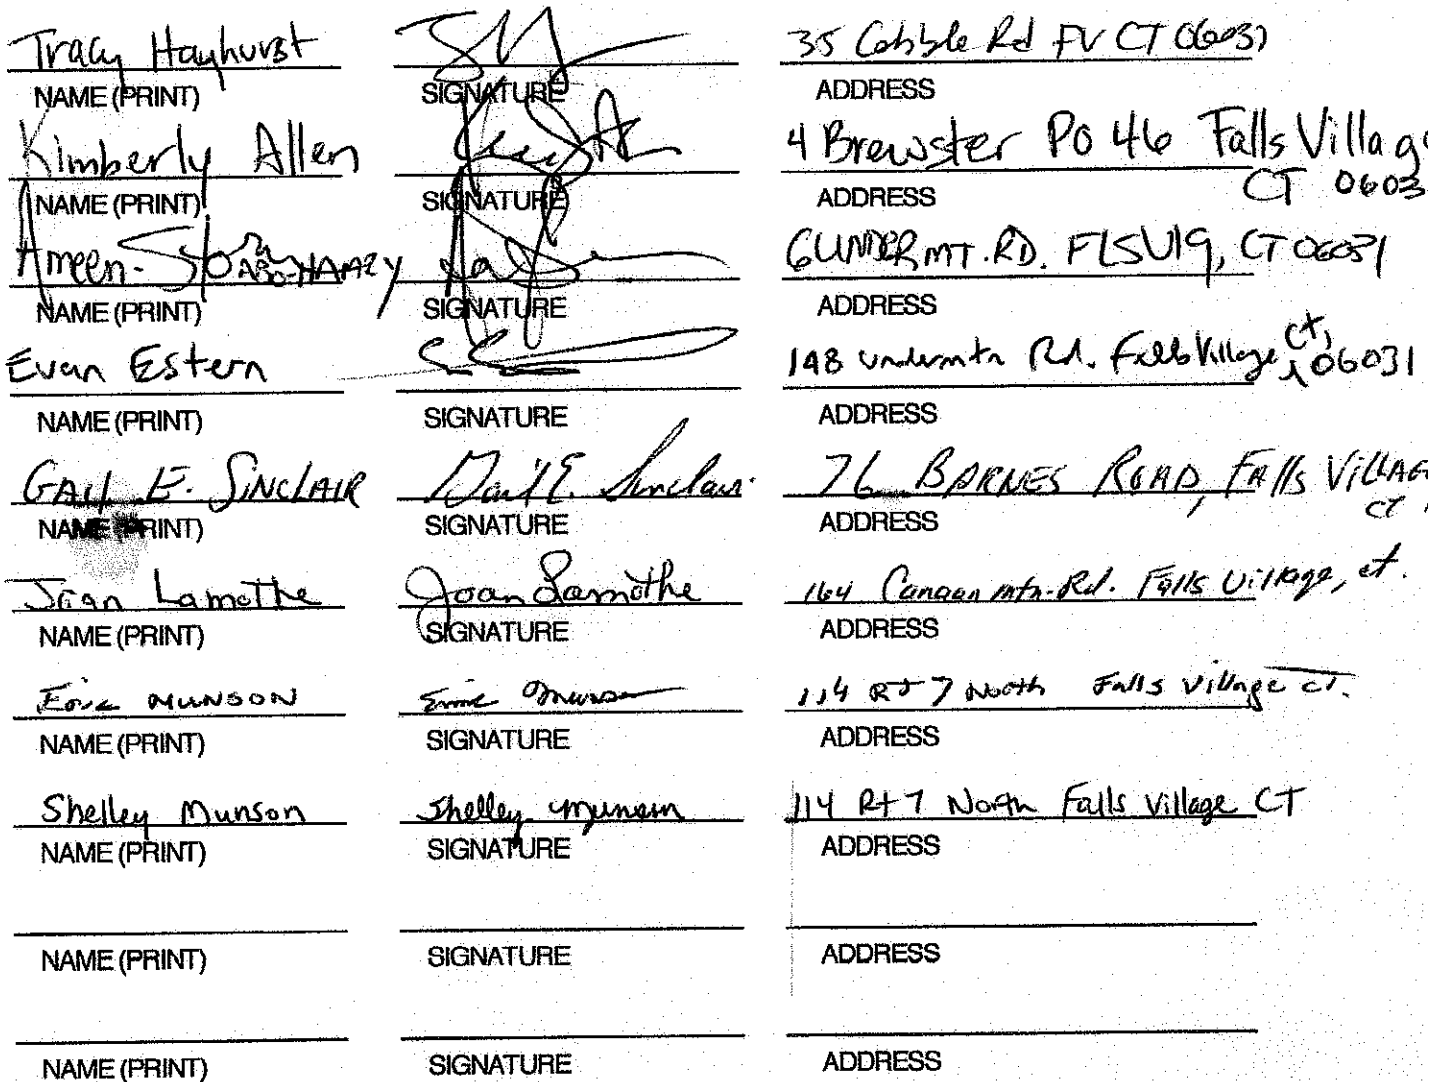 Tracy Hayhurst 35 Cobble Rd FV CT 06031
NAME (PRINT) SIGNATURE ADDRESS
Kimberly Allen 4 Brewster PO 46 Falls Village
CT 0603
NAME (PRINT) SIGNATURE ADDRESS
Ameen-Storm ABO-HAMZY MT. RD. CT 06031
NAME (PRINT) SIGNATURE ADDRESS
Evan Estern 148 undermtn Rd. Falls Village ct, 06031
NAME (PRINT) SIGNATURE ADDRESS
GAIL E. SINCLAIR Gail E. Sinclair 76 BARNES ROAD, FAlls VillAGE
CT
NAME (PRINT) SIGNATURE ADDRESS
Joan Lamothe Joan Lamothe 164 Canaan mtn. Rd. Falls Village, ct.
NAME (PRINT) SIGNATURE ADDRESS
Eric MUNSON Eric Munson 114 RT 7 North Falls Village CT.
NAME (PRINT) SIGNATURE ADDRESS
Shelley Munson Shelley Munson 114 Rt 7 North Falls Village CT
NAME (PRINT) SIGNATURE ADDRESS
NAME (PRINT) SIGNATURE ADDRESS
NAME (PRINT) SIGNATURE ADDRESS